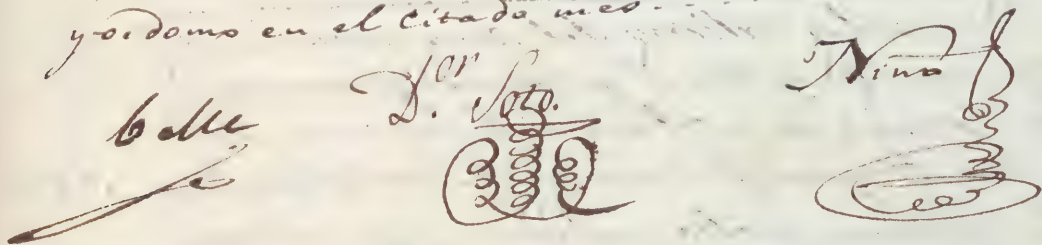 yordomo en el citado mes.
Calle D.ᵒʳ Soto. Nino